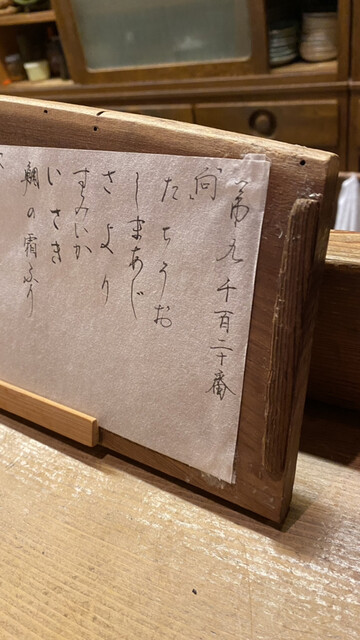 第九千百二十番
「向」
たちうお
しまあじ
さより
すみいか
いさき
鯛の霜ふり